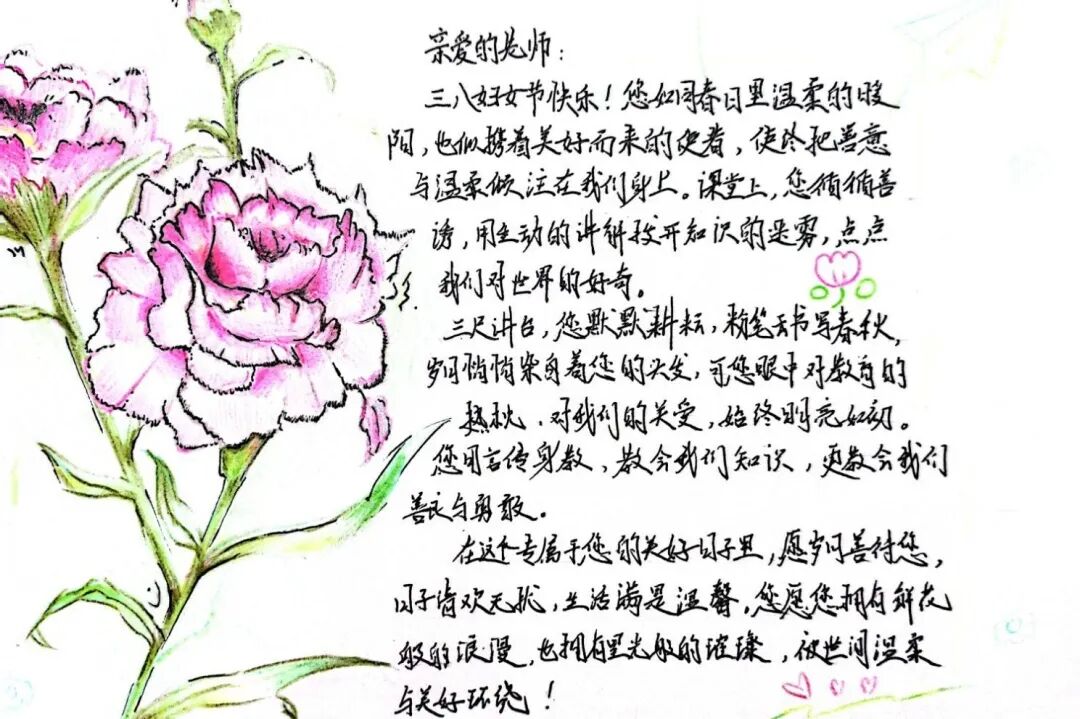 亲爱的老师：
三八妇女节快乐！您如同春日里温柔的暖
阳，也似携着美好而来的使者，使终把善意
与温柔倾注在我们身上。课堂上，您循循善
诱，用生动的讲解拨开知识的迷雾，点点
我们对世界的好奇。
三尺讲台，您默默耕耘，粉笔书写春秋，
岁月悄悄染白着您的头发，可您眼中对教育的
热忱、对我们的关爱，始终明亮如初。
您用言传身教，教会我们知识，更教会我们
善良与勇敢。
在这个专属于您的美好日子里，愿岁月善待您，
日子皆欢无忧，生活满是温馨，您愿您拥有鲜花
般的浪漫，也拥有星光般的璀璨，被世间温柔
与美好环绕！